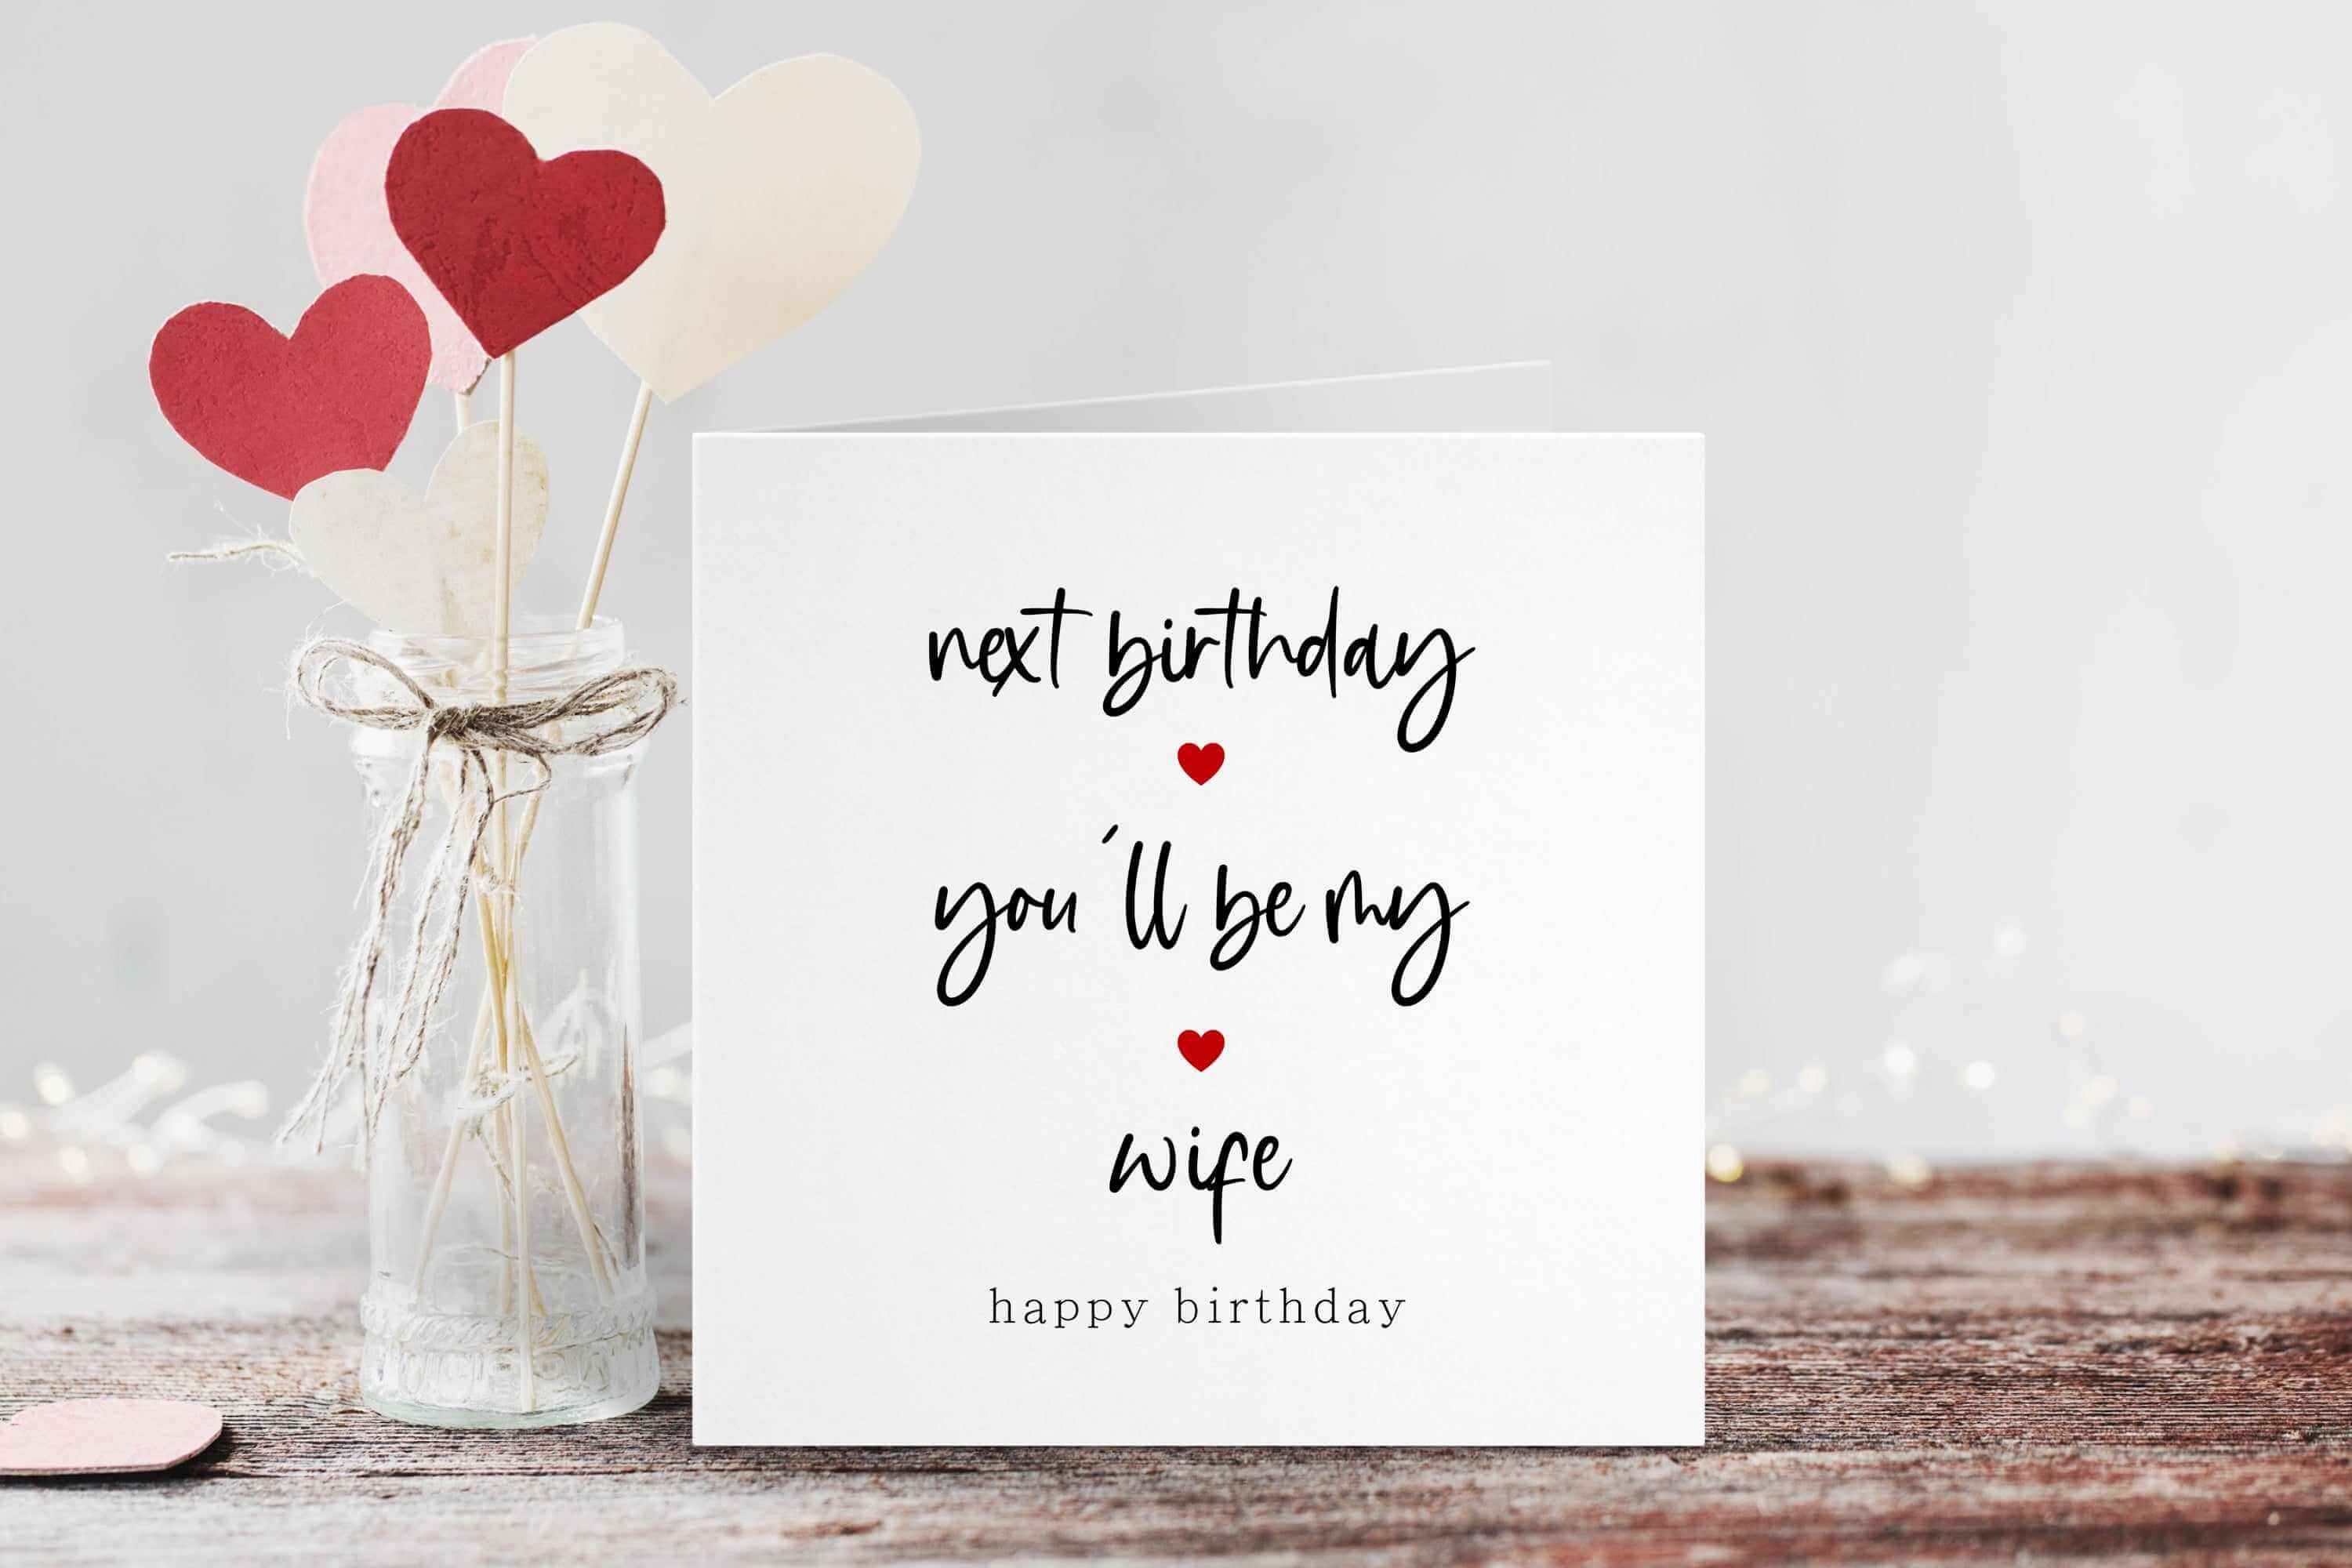 next birthday
you'll be my
wife
happy birthday